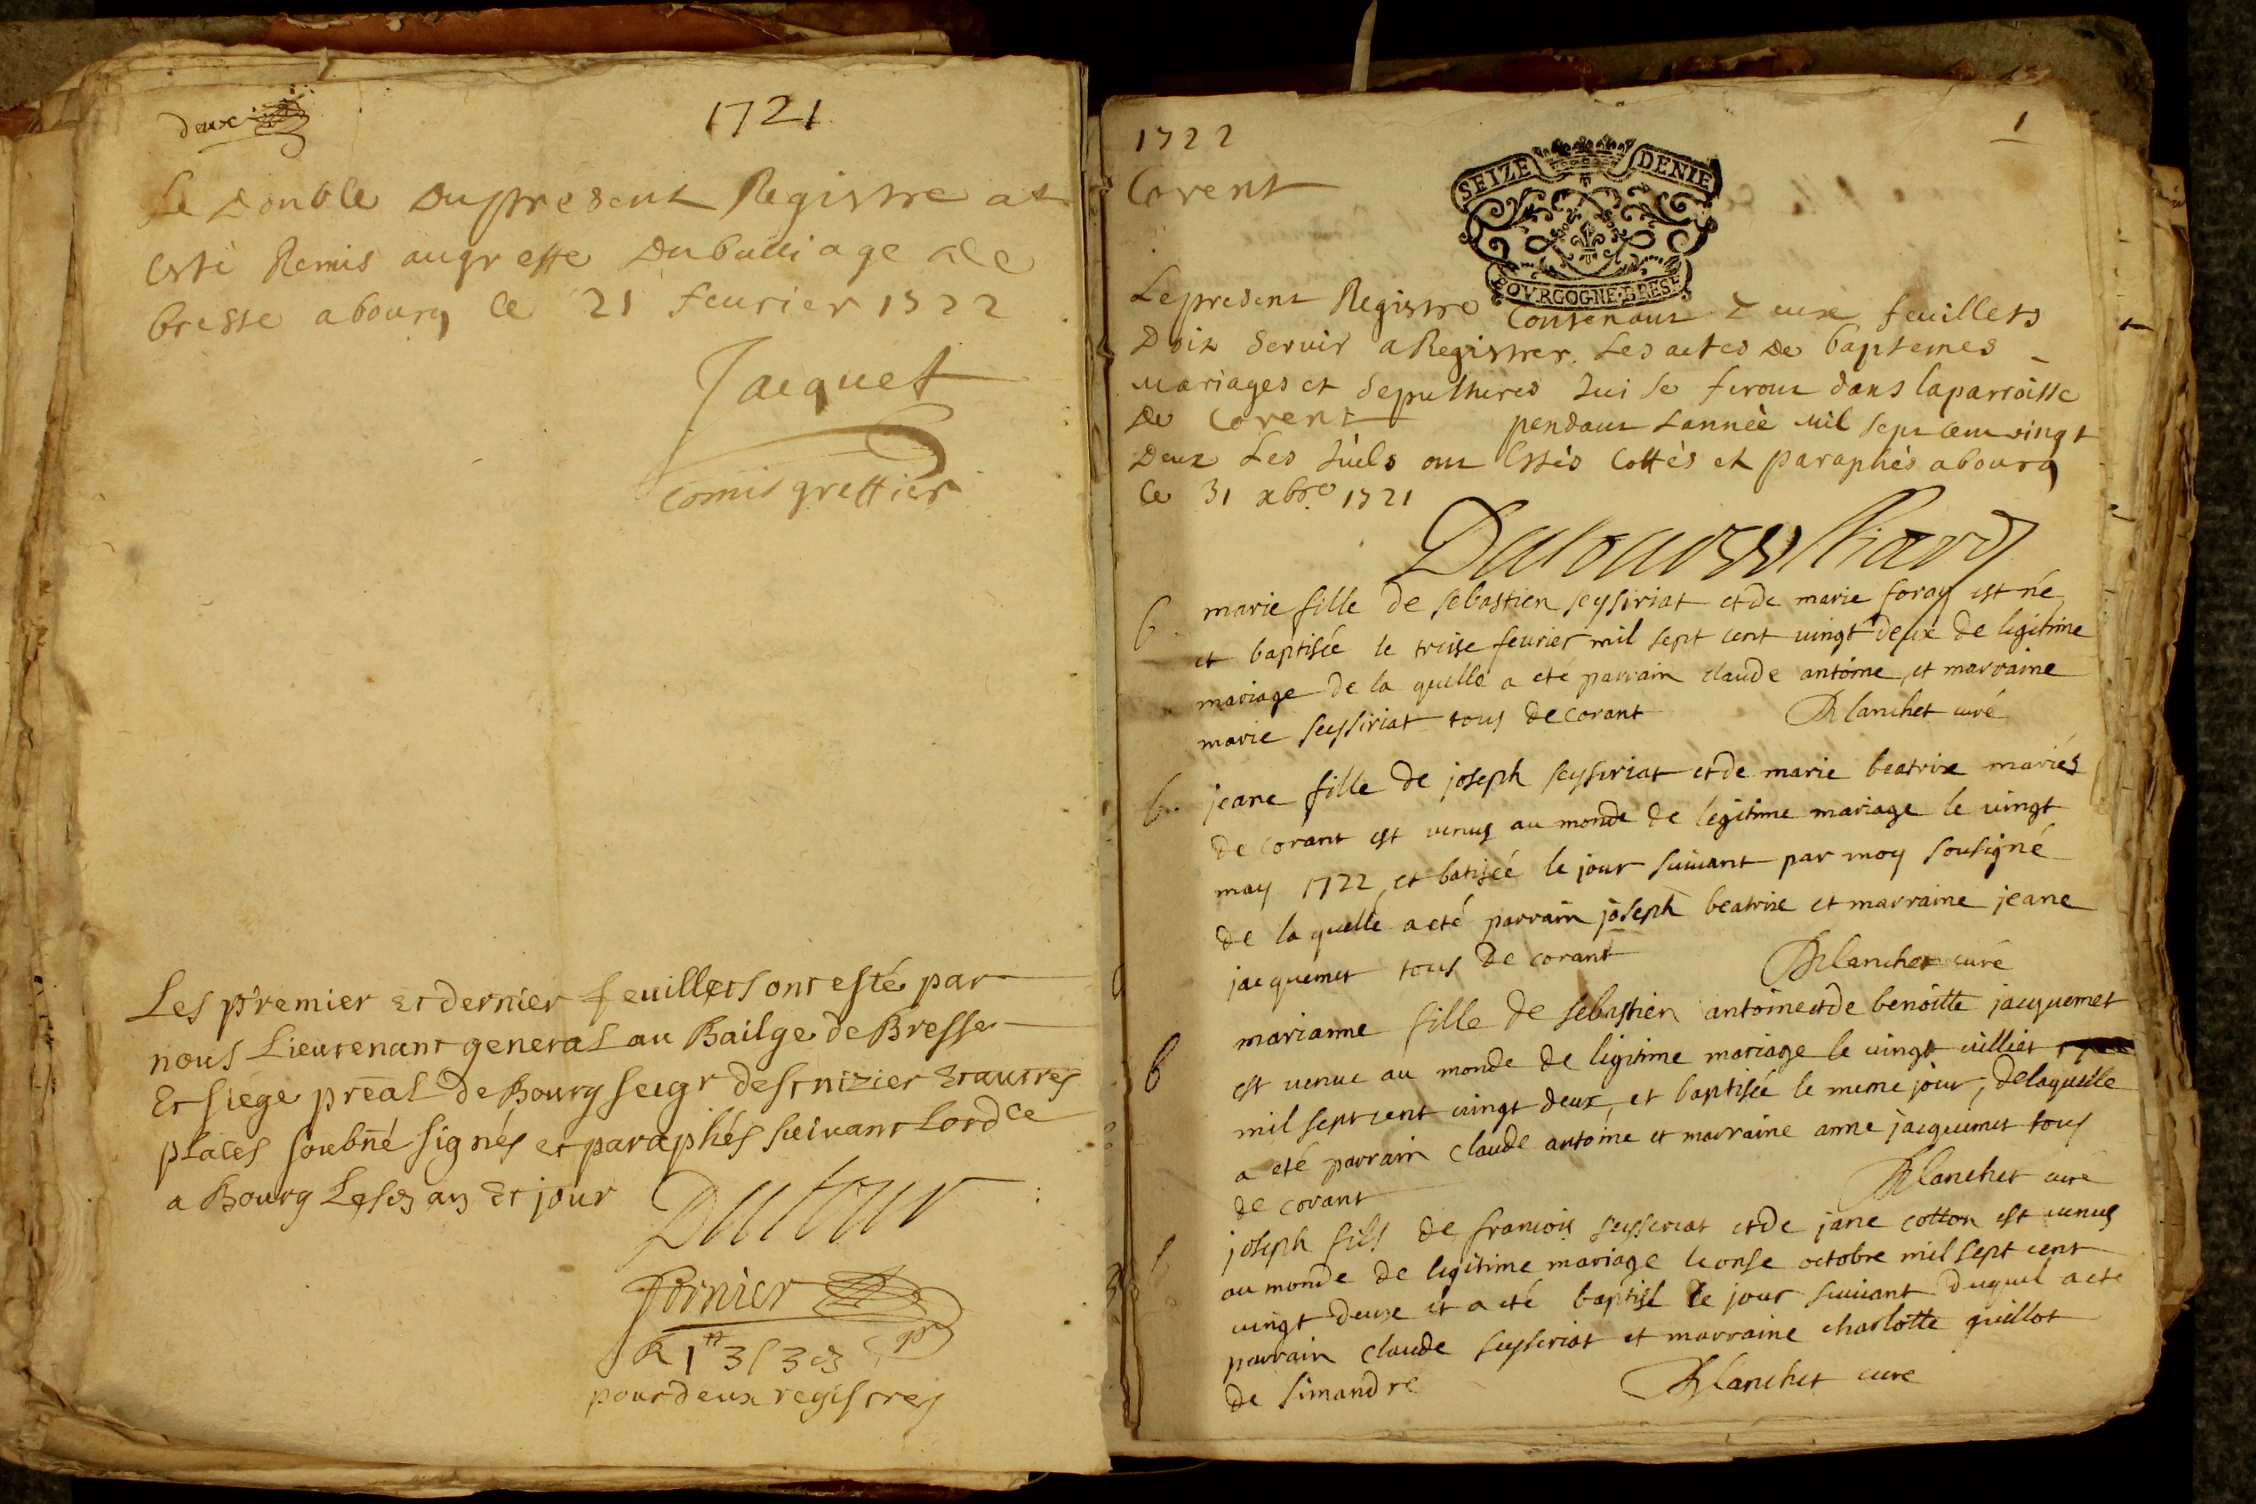 deux
1721
Le Double Du present Registre at
Esté Remis au greffe Du balliage de
bresse a bourg le 21 feurier 1722
Jacquet
comis greffier
Les premier Et dernier feuillets ont esté par
nous Lieutenant general au Bailge de Bresse
Et siege preal de Bourg seigr de st nizier Et autres
places soubné signés et paraphés suivant Lordce
a Bourg Les an Et jour
Dutour
Fornier
R 1 tt 3 s 3 d
pour deux registres
1722
1
Corent
SEIZE DENIE
BOVRGOGNE·BRESE
Le present Registre Contenant Deux feuillets
Doit Servir a Registrer Les actes De baptemes
Mariages et Sepultures qui se feront dans la paroisse
De Corent pendant L'année Mil sept cent vingt
Deux Les quels ont Estés Cottés et paraphés a bourg
Ce 31 xbre 1721
b. marie fille de sebastien seysiriat et de marie foray est né
et baptisée le treise feurier mil sept cent vingt deux de legitime
mariage de la quelle a eté parrain claude antoine, et marraine
marie seyssiriat tous de corant Blanchet curé
b. jeane fille de joseph seysiriat et de marie beatrix mariés
de corant est venus au monde de legitime mariage le vingt
may 1722, et batisée le jour suivant par moy sousigné
de la quelle a eté parrain joseph beatrix et marraine jeane
jacquemet tous de corant Blanchet curé
b marianne fille de sebastien antoine et de benoitte jacquemet
est venue au monde de ligitime mariage le vingt uilliet
mil sept cent vingt deux, et baptisée le meme jour, de laquelle
a eté parrain claude antoine et marraine anne jacquemet tous
de corant Blanchet curé
b joseph fils de francois seysseriat et de jane cotton est venus
au monde de legitime mariage le onse octobre mil sept cent
vingt deux et a eté baptisé le jour suivant duquel a eté
parrain claude seyseriat et marraine charlotte guillot
de simandre Blanchet curé